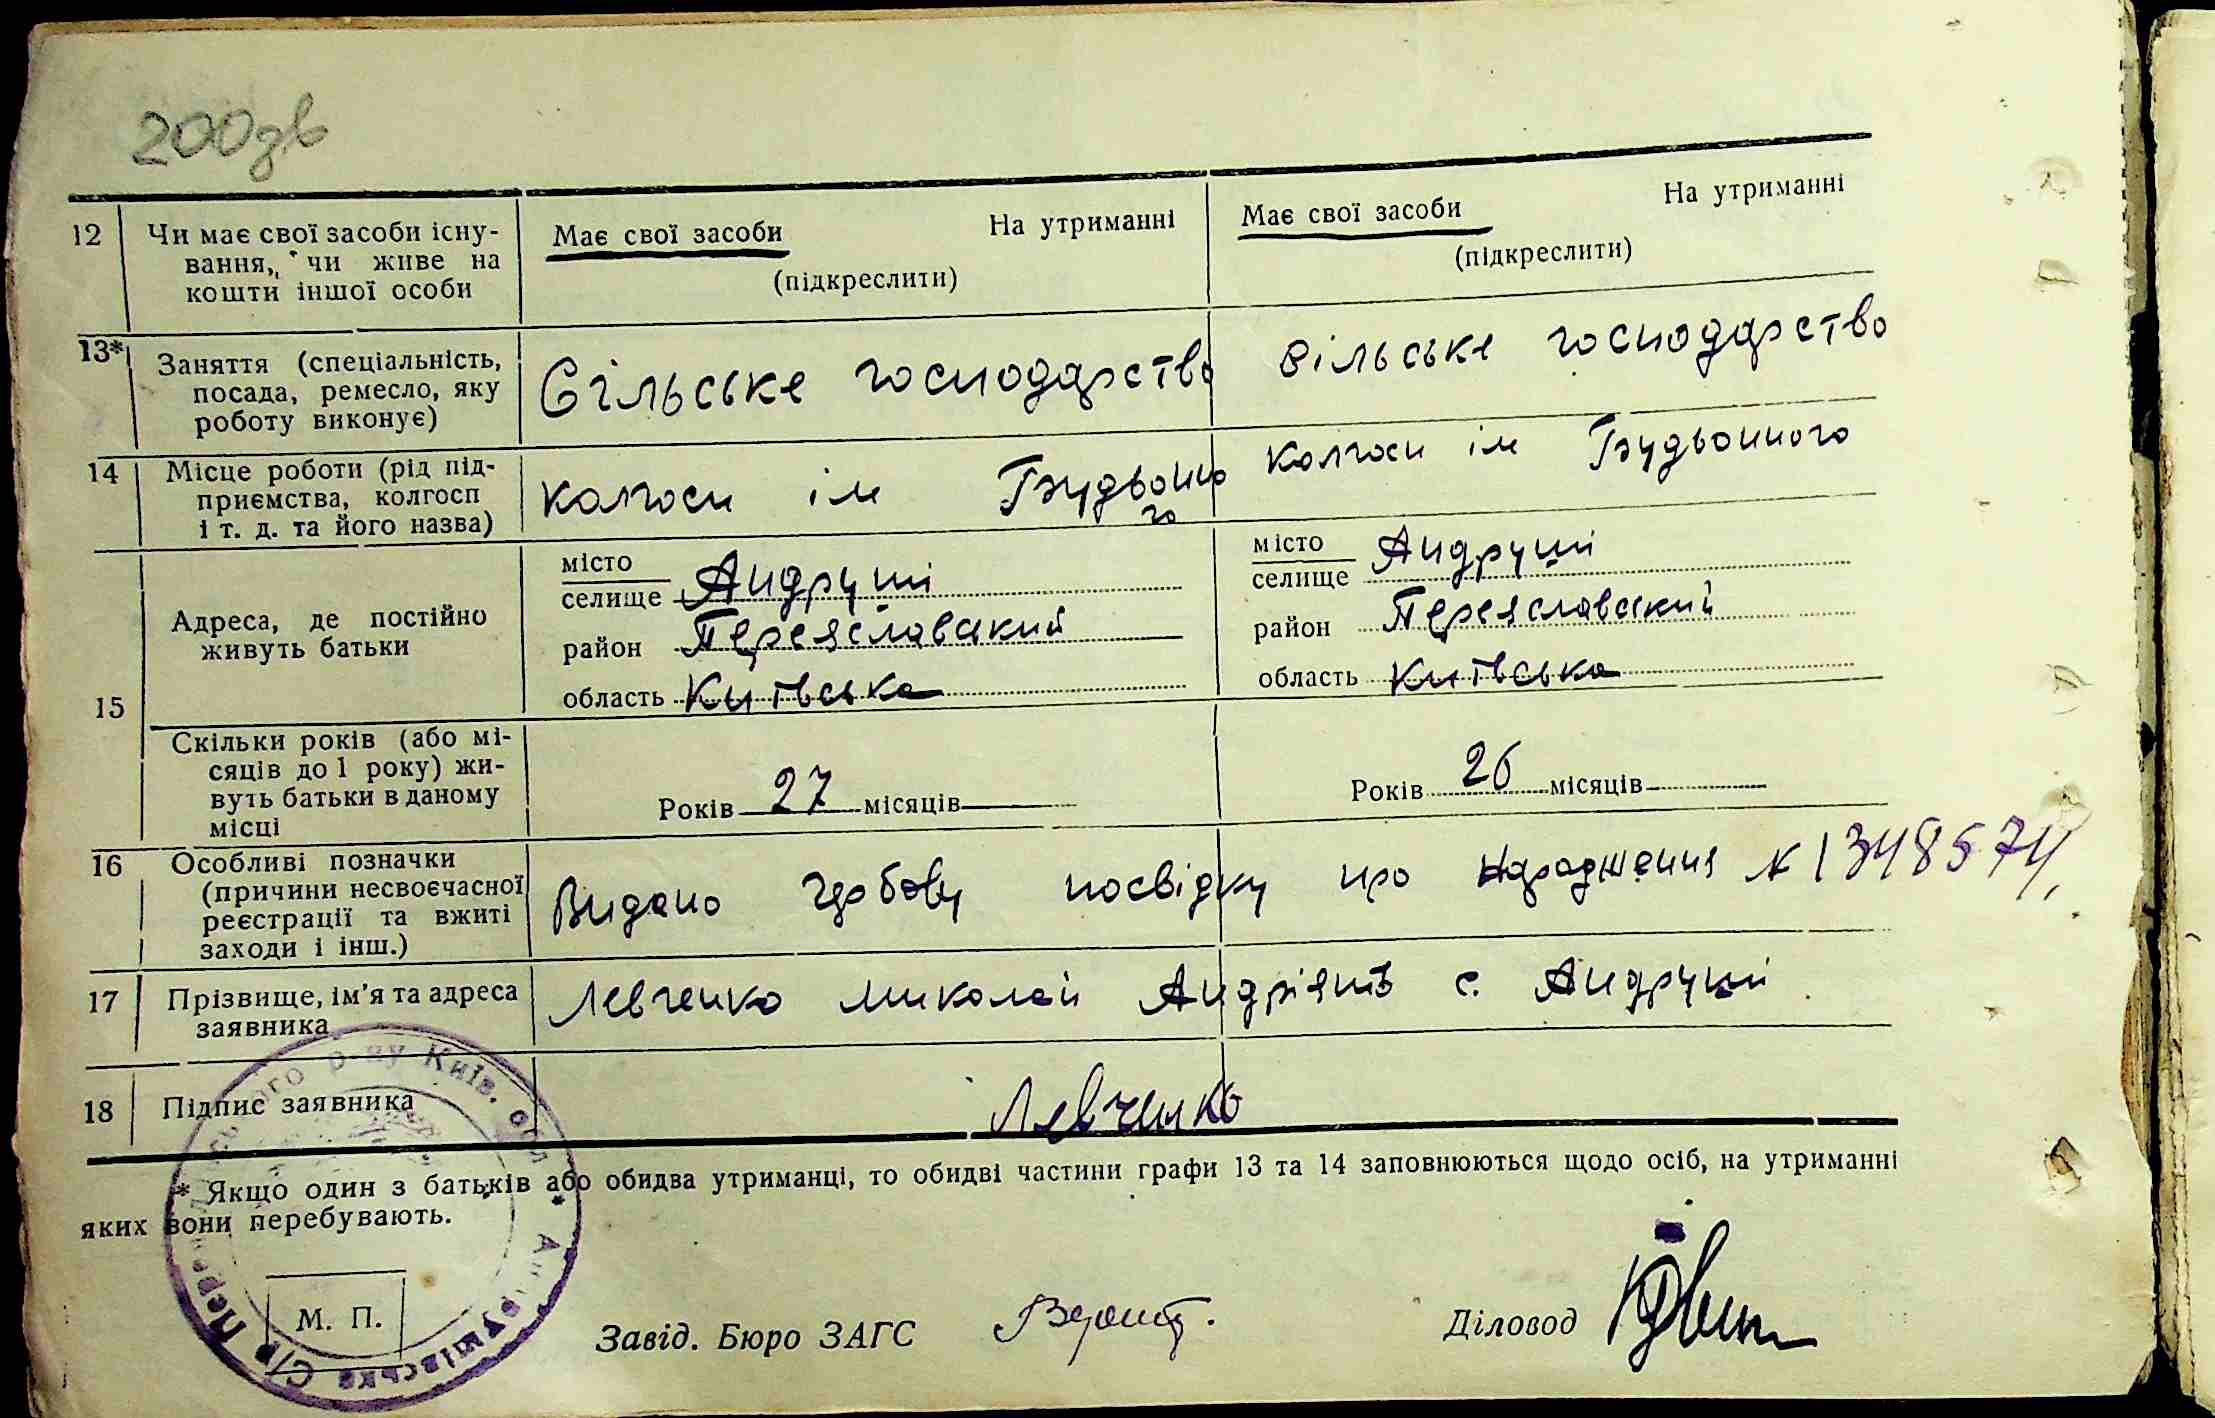 200зв
12 Чи має свої засоби існу-
вання, чи живе на
кошти іншої особи
Має свої засоби На утриманні
(підкреслити)
Має свої засоби На утриманні
(підкреслити)
13* Заняття (спеціальність,
посада, ремесло, яку
роботу виконує)
Сільське господарство
Сільське господарство
14 Місце роботи (рід під-
приємства, колгосп
і т. д. та його назва)
колгосп ім Будьоно
го
колгосп ім Будьонного
15
Адреса, де постійно
живуть батьки
місто
селище Андруші
район Переяславський
область Київська
місто
селище Андруші
район Переяславський
область Київська
Скільки років (або мі-
сяців до 1 року) жи-
вуть батьки в даному
місці
Років 27 місяців
Років 26 місяців
16 Особливі позначки
(причини несвоєчасної
реєстрації та вжиті
заходи і інш.)
Видано гербову посвідку про народження №
17 Прізвище, ім'я та адреса
заявника
Левченко Миколай с. Андруші
18 Підпис заявника
Левченко
* Якщо один з батьків або обидва утриманці, то обидві частини графи 13 та 14 заповнюються щодо осіб, на утриманні
яких вони перебувають.
М. П.
Завід. Бюро ЗАГС
Діловод
р-ну Київ. обл. * Андрушівська С/р